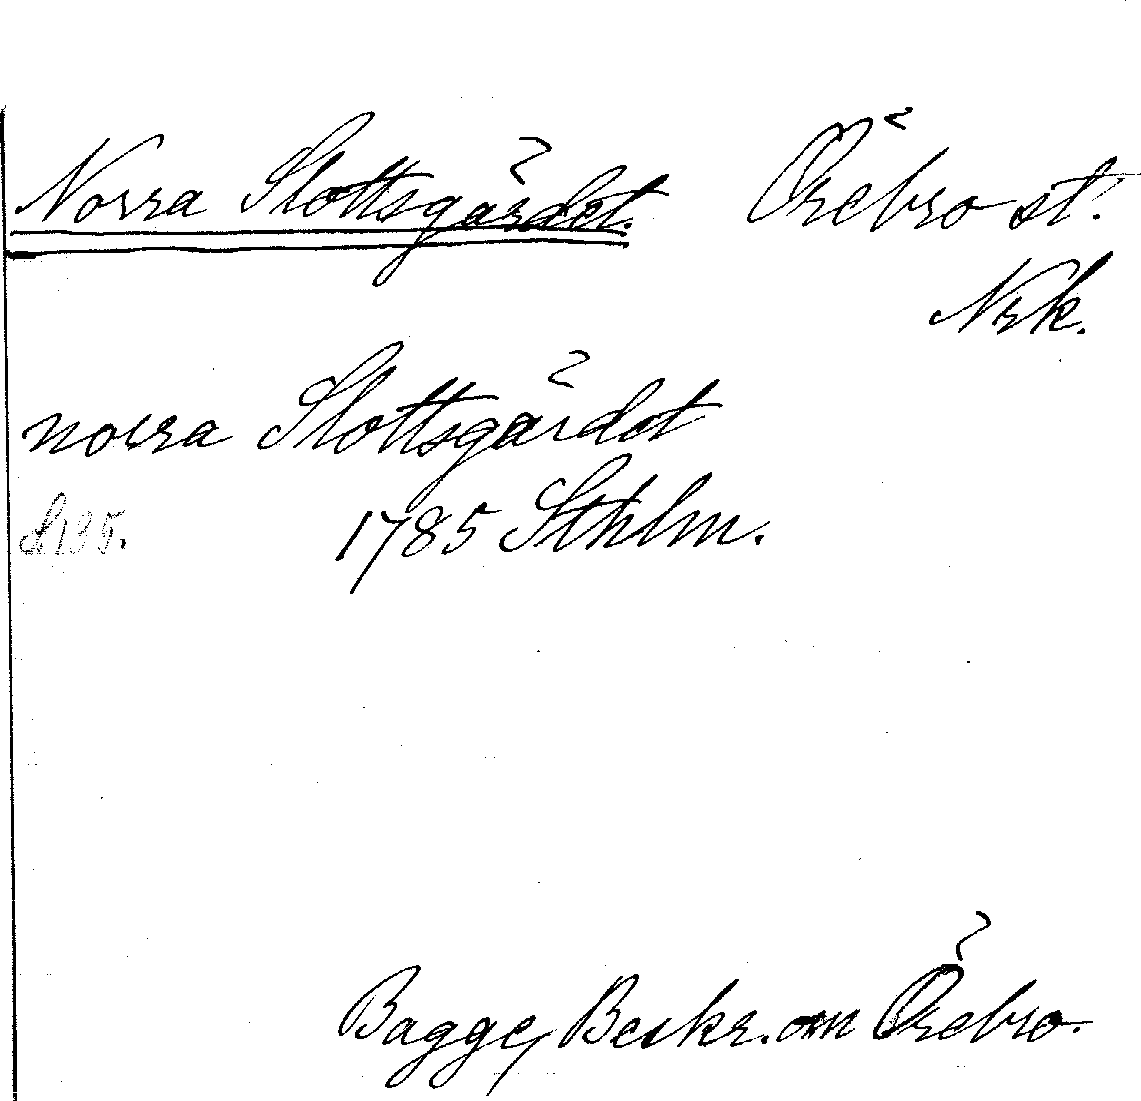 Norra Slottsgärdet. Örebro st.
Nrk.
norra Slottsgärdet
S. 135. 1785 Sthlm.
Bagge, Beskr. om Örebro.